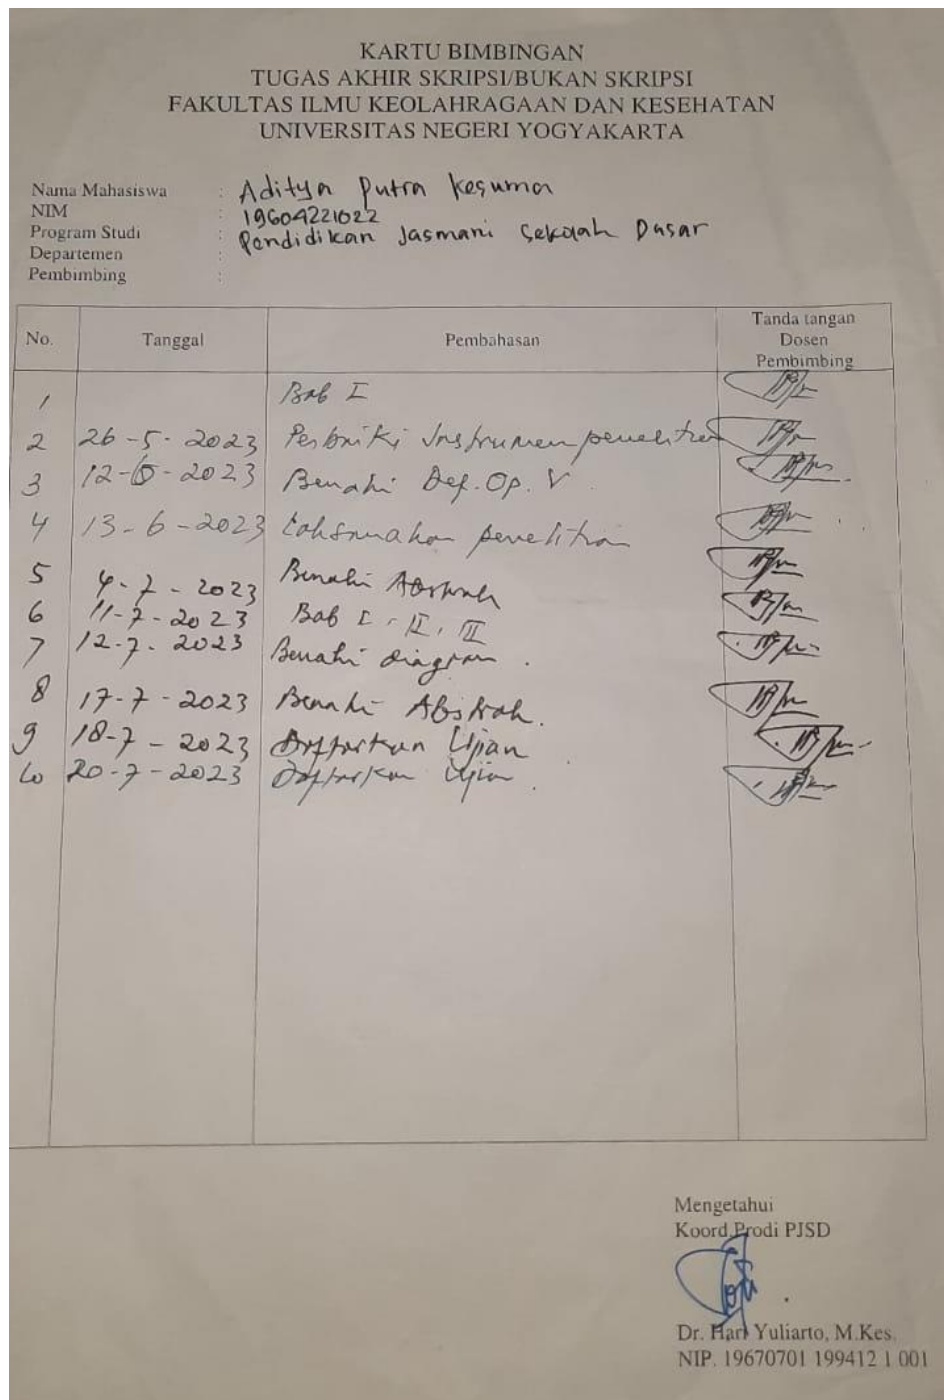 KARTU BIMBINGAN
TUGAS AKHIR SKRIPSI/BUKAN SKRIPSI
FAKULTAS ILMU KEOLAHRAGAAN DAN KESEHATAN
UNIVERSITAS NEGERI YOGYAKARTA
Nama Mahasiswa : Aditya Putra Kesuma
NIM : 19604221022
Program Studi : Pendidikan Jasmani Sekolah Dasar
Departemen :
Pembimbing :
No. Tanggal Pembahasan Tanda tangan Dosen Pembimbing
1 Bab I
2 26-5-2023 Perbaiki Instrumen penelitian
3 12-6-2023 Benahi Def. Op. V
4 13-6-2023 Laksanakan penelitian
5 4-7-2023 Benahi Abstrak
6 11-7-2023 Bab I, II, III
7 12-7-2023 Benahi diagram.
8 17-7-2023 Benahi Abstrak.
9 18-7-2023 Daftarkan Ujian
10 20-7-2023 Daftarkan Ujian.
Mengetahui
Koord.Prodi PJSD
Dr. Hari Yuliarto, M.Kes.
NIP. 19670701 199412 1 001